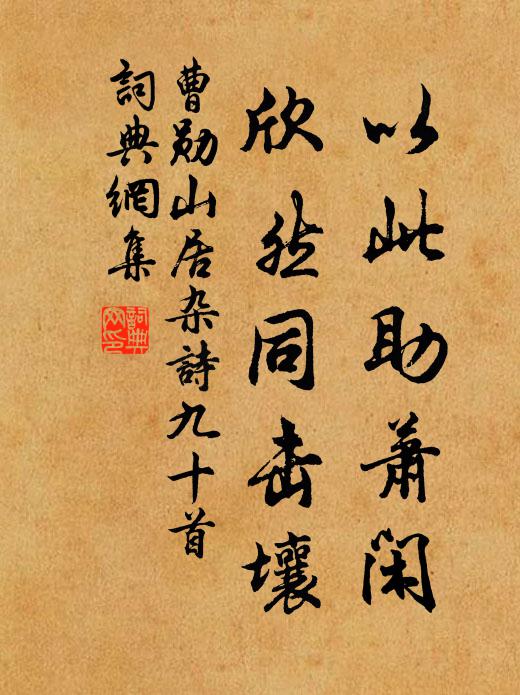 以此助萧闲
欣然同击壤
曹勋山居杂詩九十首
詞典網集
詞典網印